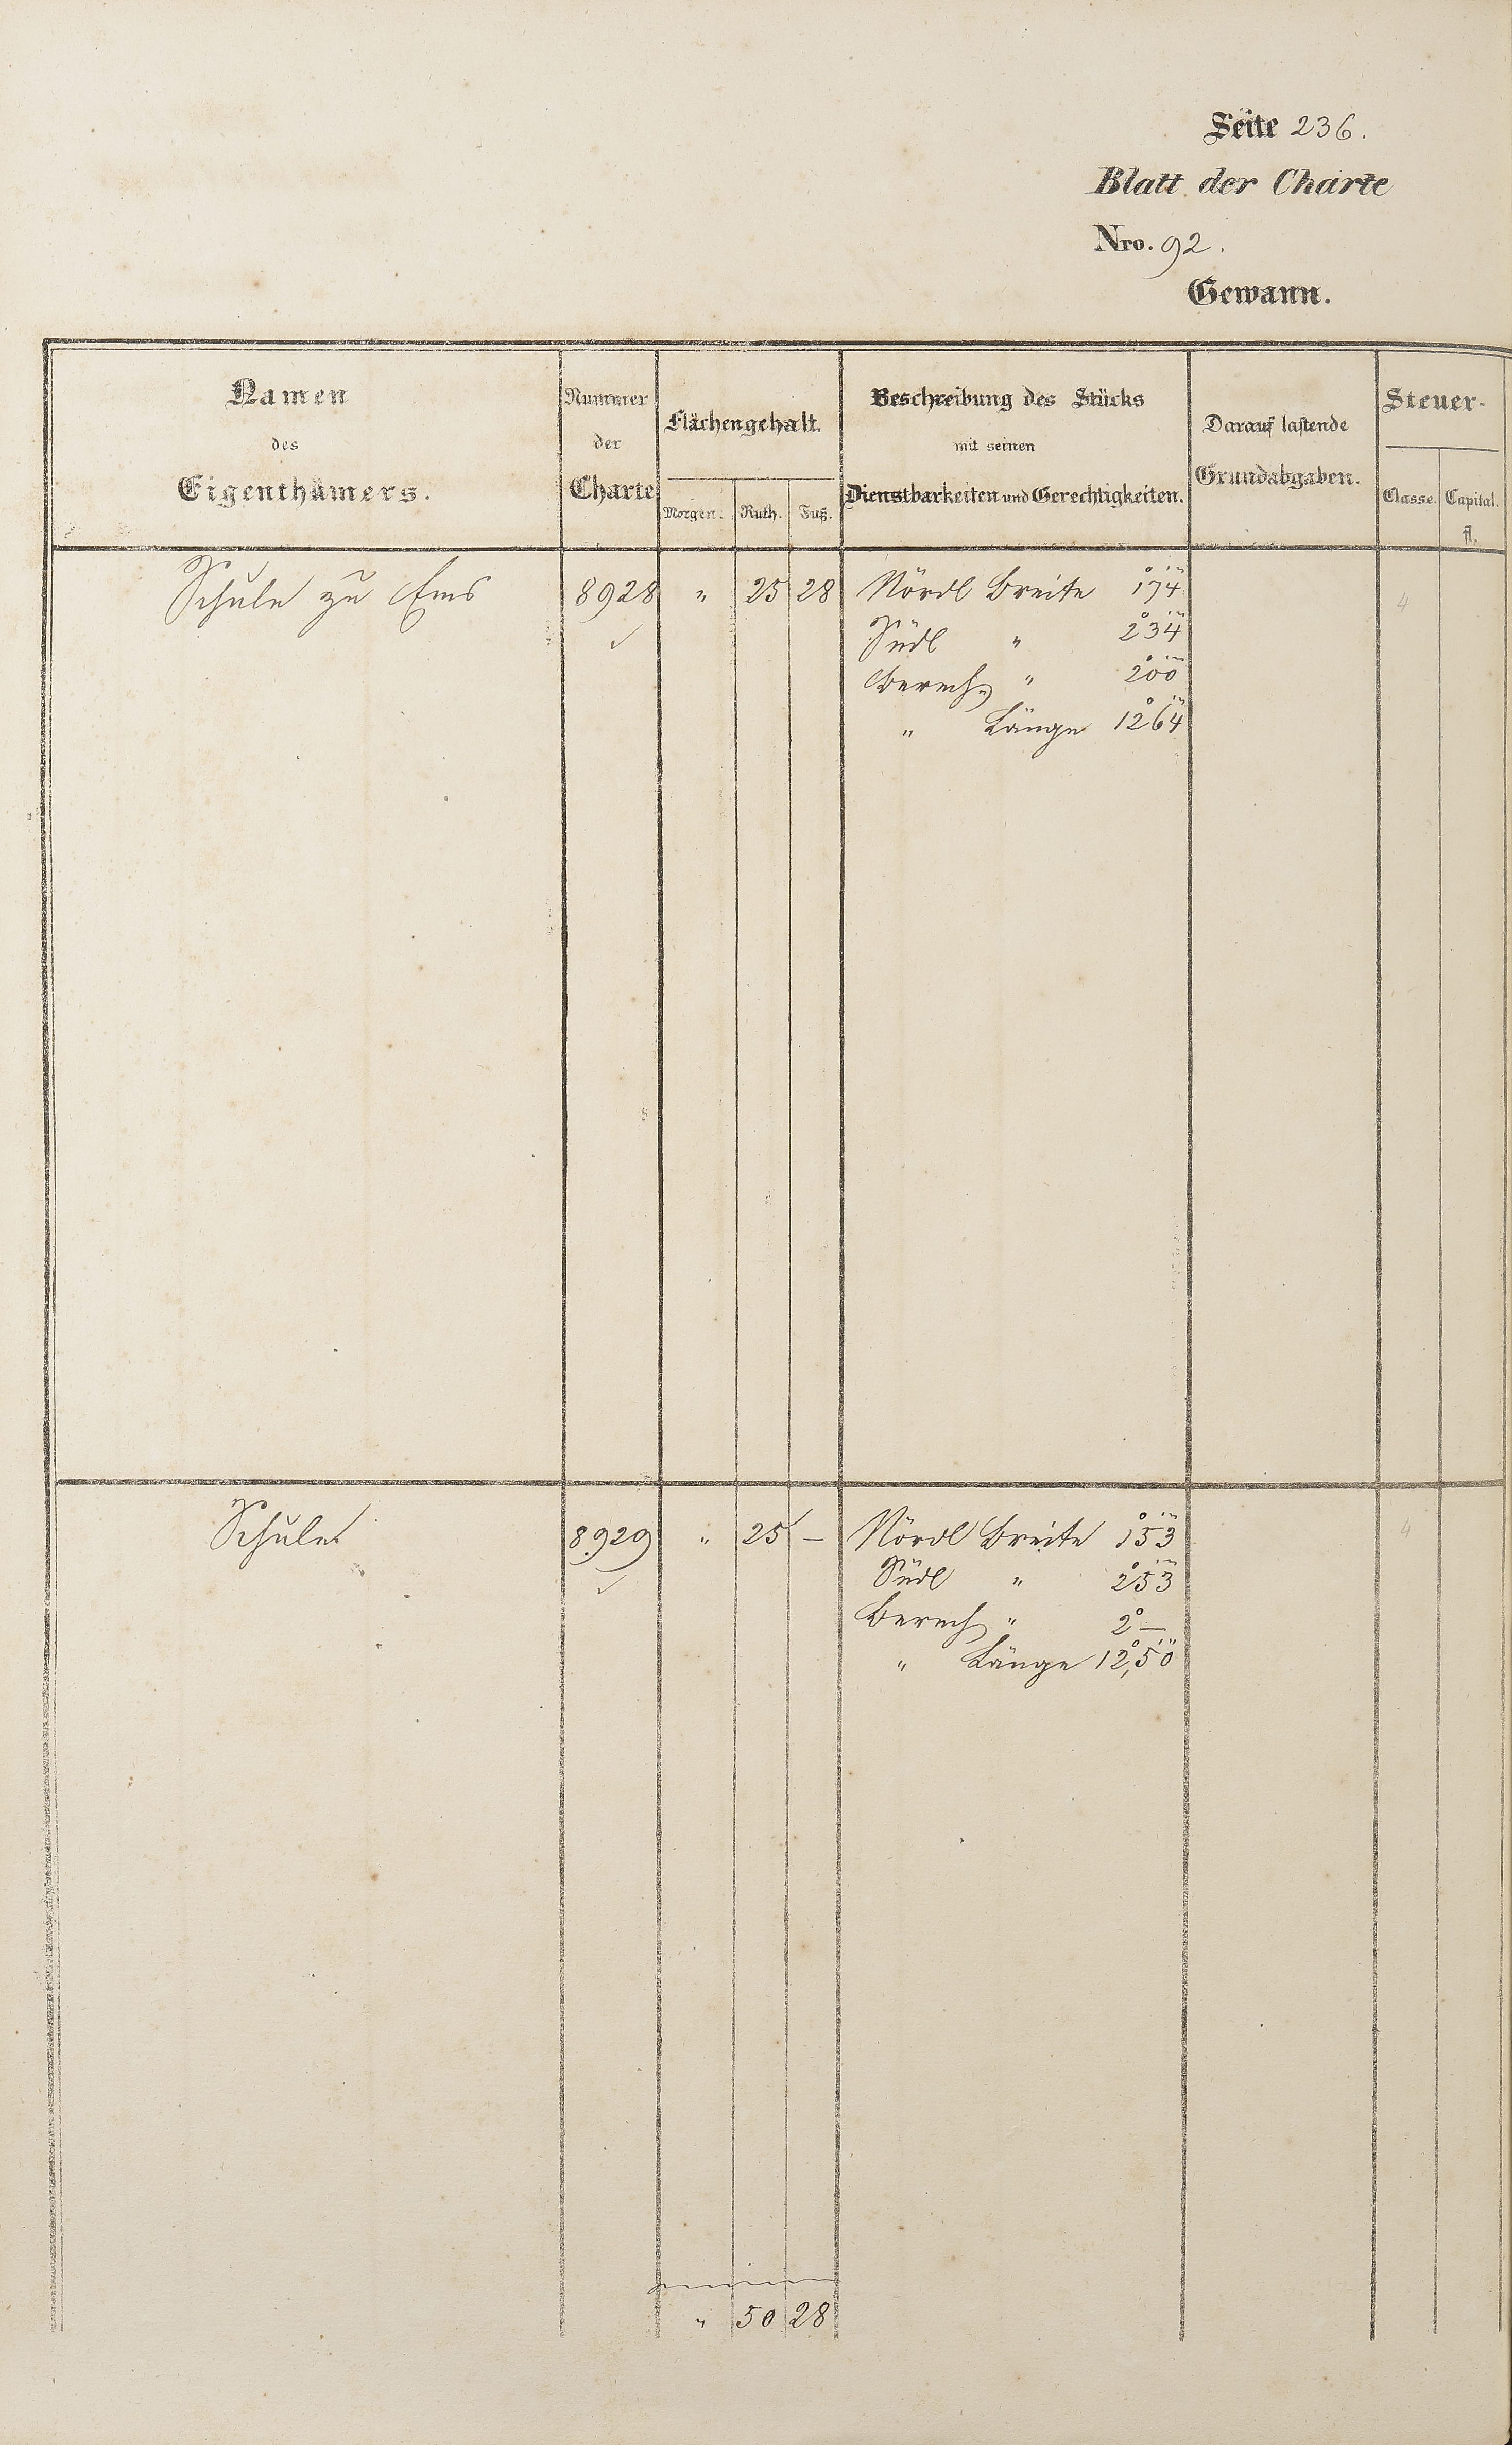 Seite 236.
Blatt der Charte
Nro. 92.
Gewann.
Namen
des
Eigenthümers.
Nummer
der
Charte
Flächengehalt.
Morgen. Ruth. Fuß.
Beschreibung des Stücks
mit seinen
Dienstbarkeiten und Gerechtigkeiten.
Darauf lastende
Grundabgaben.
Steuer-
Classe. Capital.
fl.
Schule zu Ems 8928 " 25 28 Nördl Breite 1°7'4" 4
✓ Südl " 2°3'4"
Berech " 2°0'0"
" Länge 12°6'4"
Schule 8929 " 25 — Nördl Breite 1°5'3" 4
✓ Südl " 2°5'3"
Berech " 2° —
" Länge 12°,5'0"
" 50 28